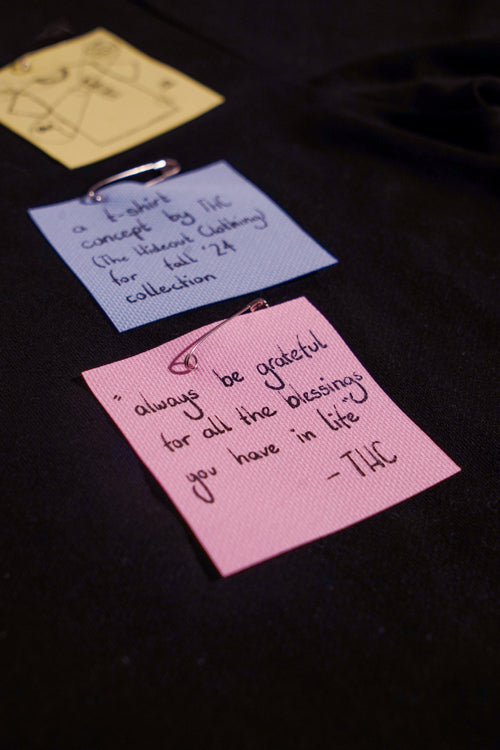 a t-shirt
concept by THC
(The Hideout Clothing)
for fall '24
collection
"always be grateful
for all the blessings
you have in life"
- THC